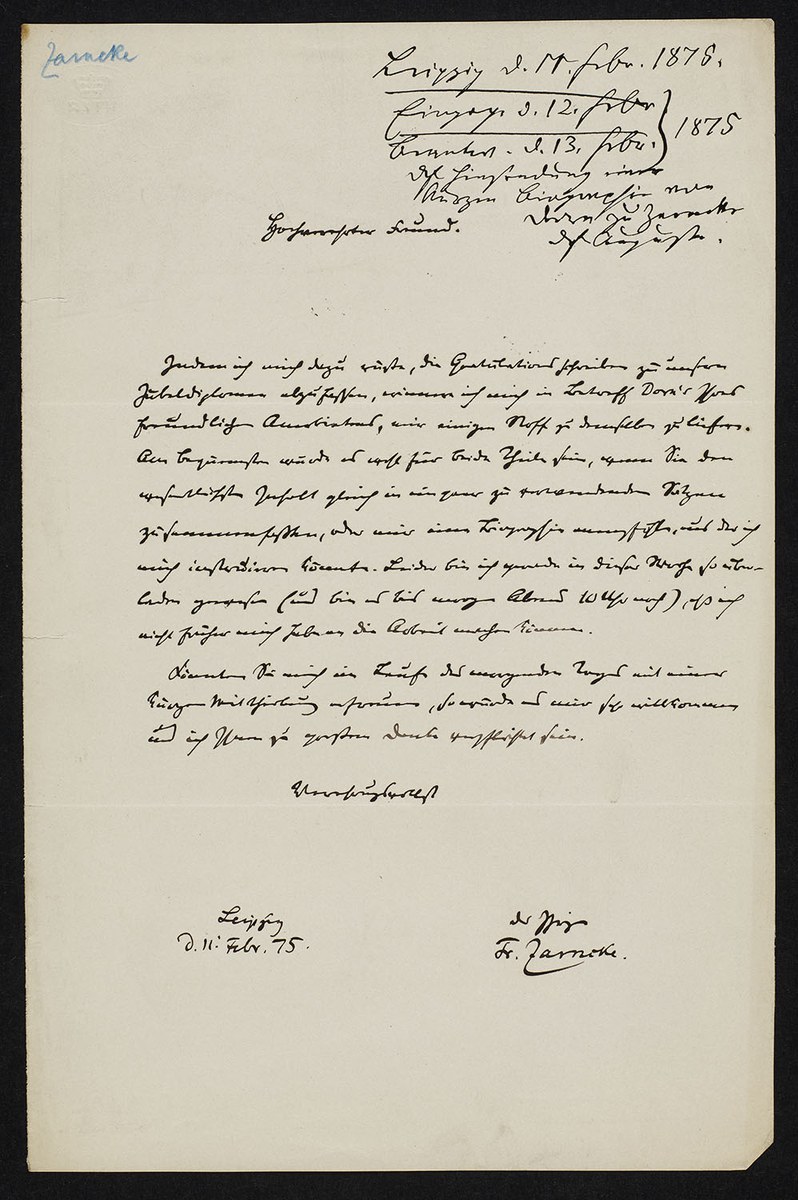 Zarncke
Leipzig d. 11. Febr. 1875.
Eingeg. d. 12. Febr.
Beantw. d. 13. Febr. } 1875
dch Einsendung einer
kurzen Biographie von
Dorn zu Zarncke
dch
Hochverehrter Freund.
Indem ich mich dazu rüste, die Gratulationsschreiben zu unsern
Jubeldiplomen abzufassen, erinnere ich mich in Betreff Dorn's Ihres
freundlichen Anerbietens, mir einigen Stoff zu demselben zu liefern.
Am bequemsten würde es wohl für beide Theile sein, wenn Sie den
wesentlichsten Inhalt gleich in ein paar zu verwendenden Sätzen
zusammenfaßten, oder mir eine Biographie, aus der ich
mich instruiren könnte. Leider bin ich gerade in dieser Woche so über-
laden gewesen (und bin es bis morgen Abend 10 Uhr noch), daß ich
nicht früher mich habe an die Arbeit machen können.
Könnten Sie mich im Laufe des morgenden Tages mit einer
kurzen Mittheilung erfreuen, so würde es mir sehr willkommen
und ich Ihnen zu großem Danke verpflichtet sein.
Verehrungsvollst
Leipzig
d. 11. Febr. 75.
der Ihrige
Fr. Zarncke.